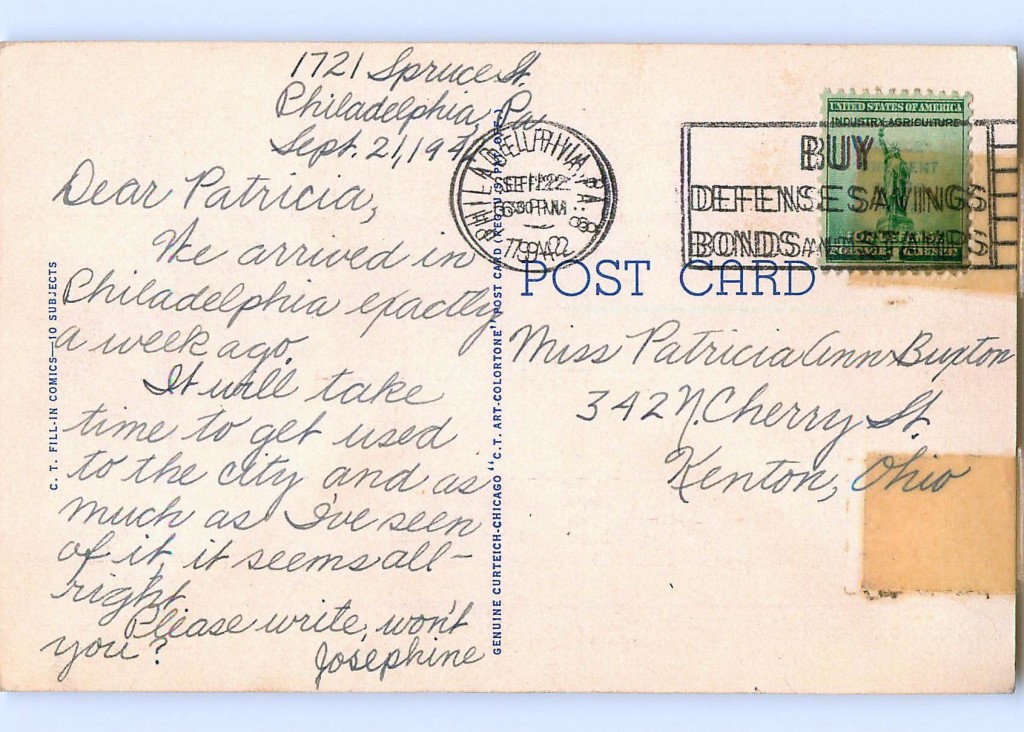 1721 Spruce St.
Philadelphia, Pa
Sept. 21, 194
Dear Patricia,
We arrived in
Philadelphia exactly
a week ago.
It will take
time to get used
to the city and as
much as I've seen
of it, it seems all-
right
Please write, won't
you?
Josephine
C. T. FILL-IN COMICS—10 SUBJECTS
GENUINE CURTEICH-CHICAGO "C.T. ART-COLORTONE" POST CARD (REG. U.S. PAT. OFF.)
PHILADELPHIA, PA.
SEP 22
630 PM
POST CARD
BUY
DEFENSE SAVINGS
BONDS AND STAMPS
UNITED STATES OF AMERICA
INDUSTRY AGRICULTURE
Miss Patricia Ann Buxton
342 N. Cherry St.
Kenton, Ohio